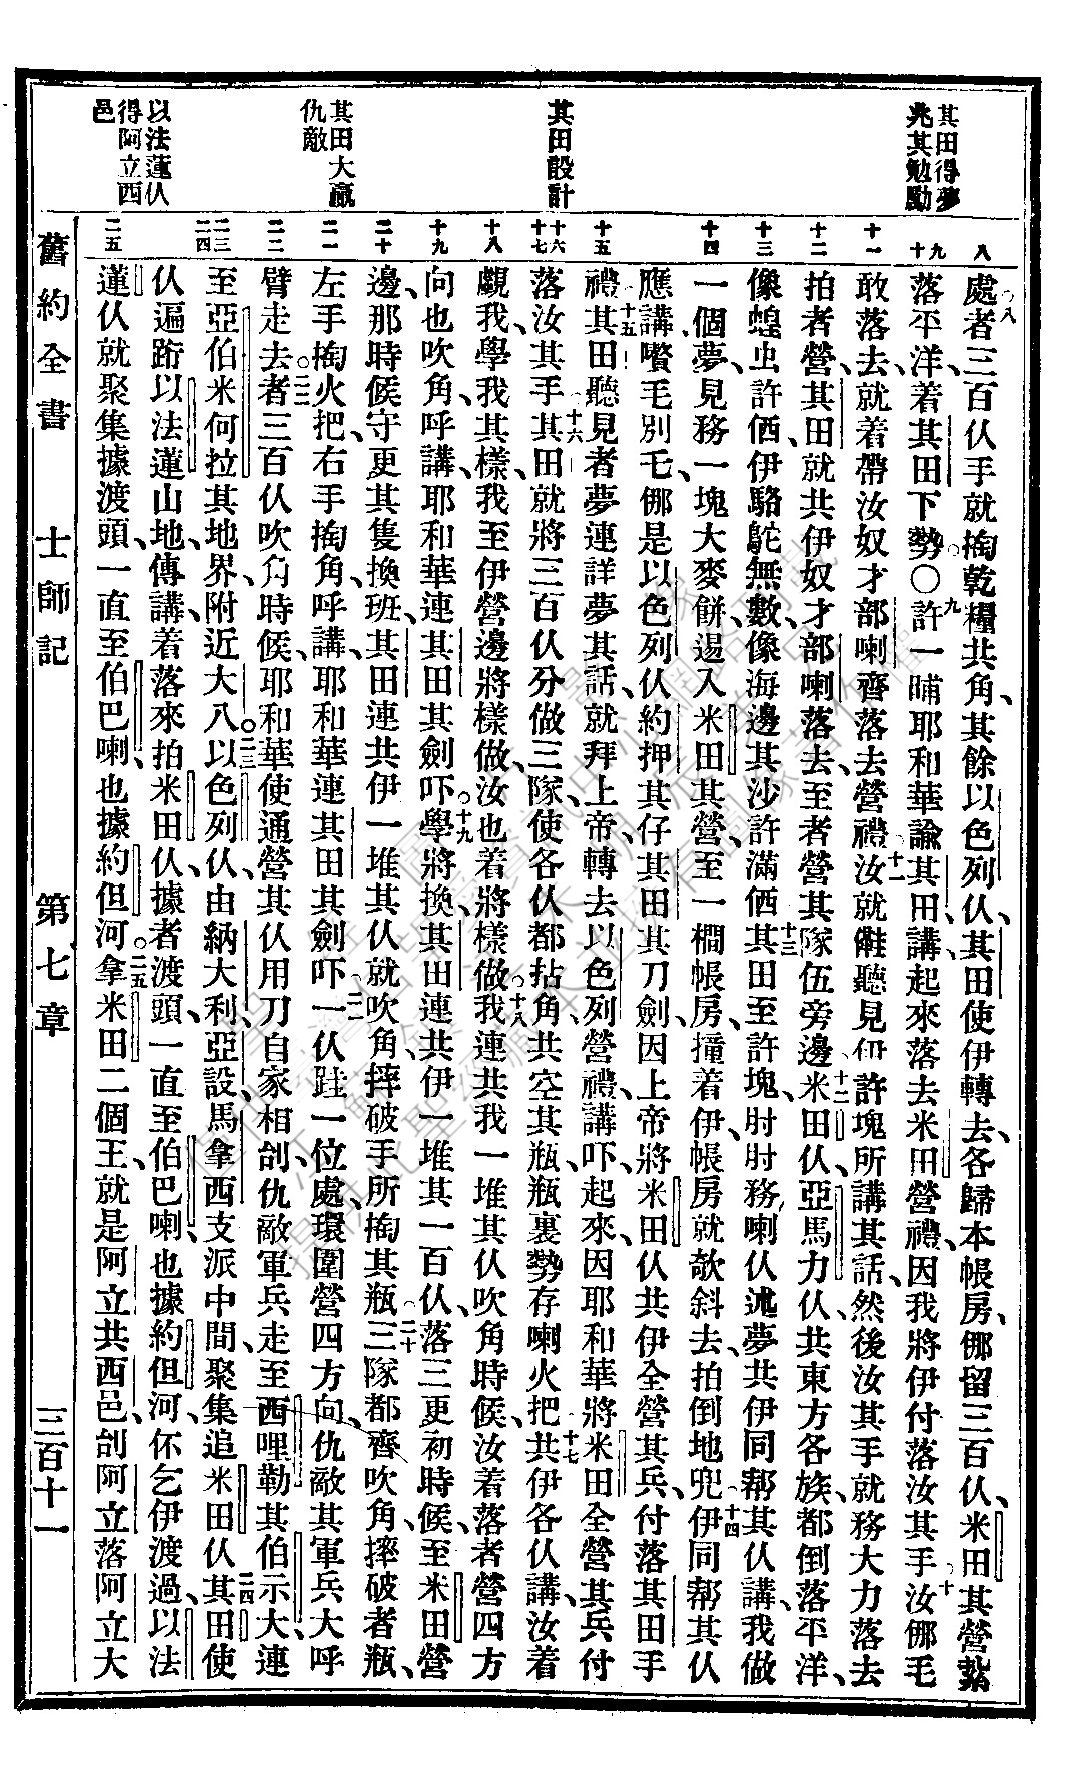 其田得夢
兆其勉勵
其田設計
其田大贏
仇敵
以法蓮仈
得阿立西
邑
八
九
十
十一
十二
十三
十四
十五
十六
十七
十八
十九
二十
二一
二二
二三
二四
二五
處者三百仈手就掏乾糧共角、其餘以色列仈、其田使伊轉去、各歸本帳房、㑚留三百仈、米田其營紥
落平洋、着其田下勢○許一晡耶和華諭其田、講、起來落去米田營禮、因我將伊付落汝其手、汝㑚毛
敢落去、就着帶汝奴才部喇齊落去營禮、汝就𠆧聽見伊許塊所講其話、然後汝其手就務大力落去
拍者營、其田就共伊奴才部喇落去、至者營其隊伍旁邊、米田仈、亞馬力仈、共東方各族、都倒落平洋、
像蝗虫許倆、伊駱駝無數、像海邊其沙許滿倆、其田至許塊、肘肘務喇仈述夢、共伊同幚其仈講、我做
一個夢、見務一塊大麥餅、逷入米田其營、至一橺帳房、撞着伊、帳房就欹斜去、拍倒地兜、伊同幚其仈
應講、嚽毛別乇、㑚是以色列仈約押其仔其田其刀劍、因上帝將米田仈共伊全營其兵、付落其田手
禮、其田聽見者夢連詳夢其話、就拜上帝、轉去以色列營禮、講吓、起來、因耶和華將米田全營其兵付
落汝其手、其田就將三百仈分做三隊、使各仈都拈角、共空其瓶、瓶裏勢存喇火把、共伊各仈講、汝着
覷我、學我其樣、我至伊營邊、將樣做、汝也着將樣做、我連共我一堆其仈吹角時候、汝着落者營四方
向、也吹角、呼講、耶和華連其田其劍吓、學將換、其田連共伊一堆其一百仈、落三更初時候、至米田營
邊、那時候守更其隻換班、其田連共伊一堆其仈就吹角、摔破手所掏其瓶、三隊都齊吹角、摔破者瓶、
左手掏火把、右手掏角、呼講、耶和華連其田其劍吓、一仈跬一位處、環圍營四方向、仇敵其軍兵大呼
臂走去、者三百仈吹角時候、耶和華使通營其仈用刀自家相刣、仇敵軍兵走至西哩勒其伯示大、連
至亞伯米何拉其地界、附近大八、以色列仈由納大利、亞設、馬拿西支派中間、聚集追米田仈、其田使
仈遍跡以法蓮山地、傳講、着落來拍米田仈、據者渡頭、一直至伯巴喇、也據約但河、伓乞伊渡過、以法
蓮仈就聚集據渡頭、一直至伯巴喇、也據約但河、拿米田二個王、就是阿立共西邑、刣阿立落阿立大
舊約全書
士師記
第七章
三百十一